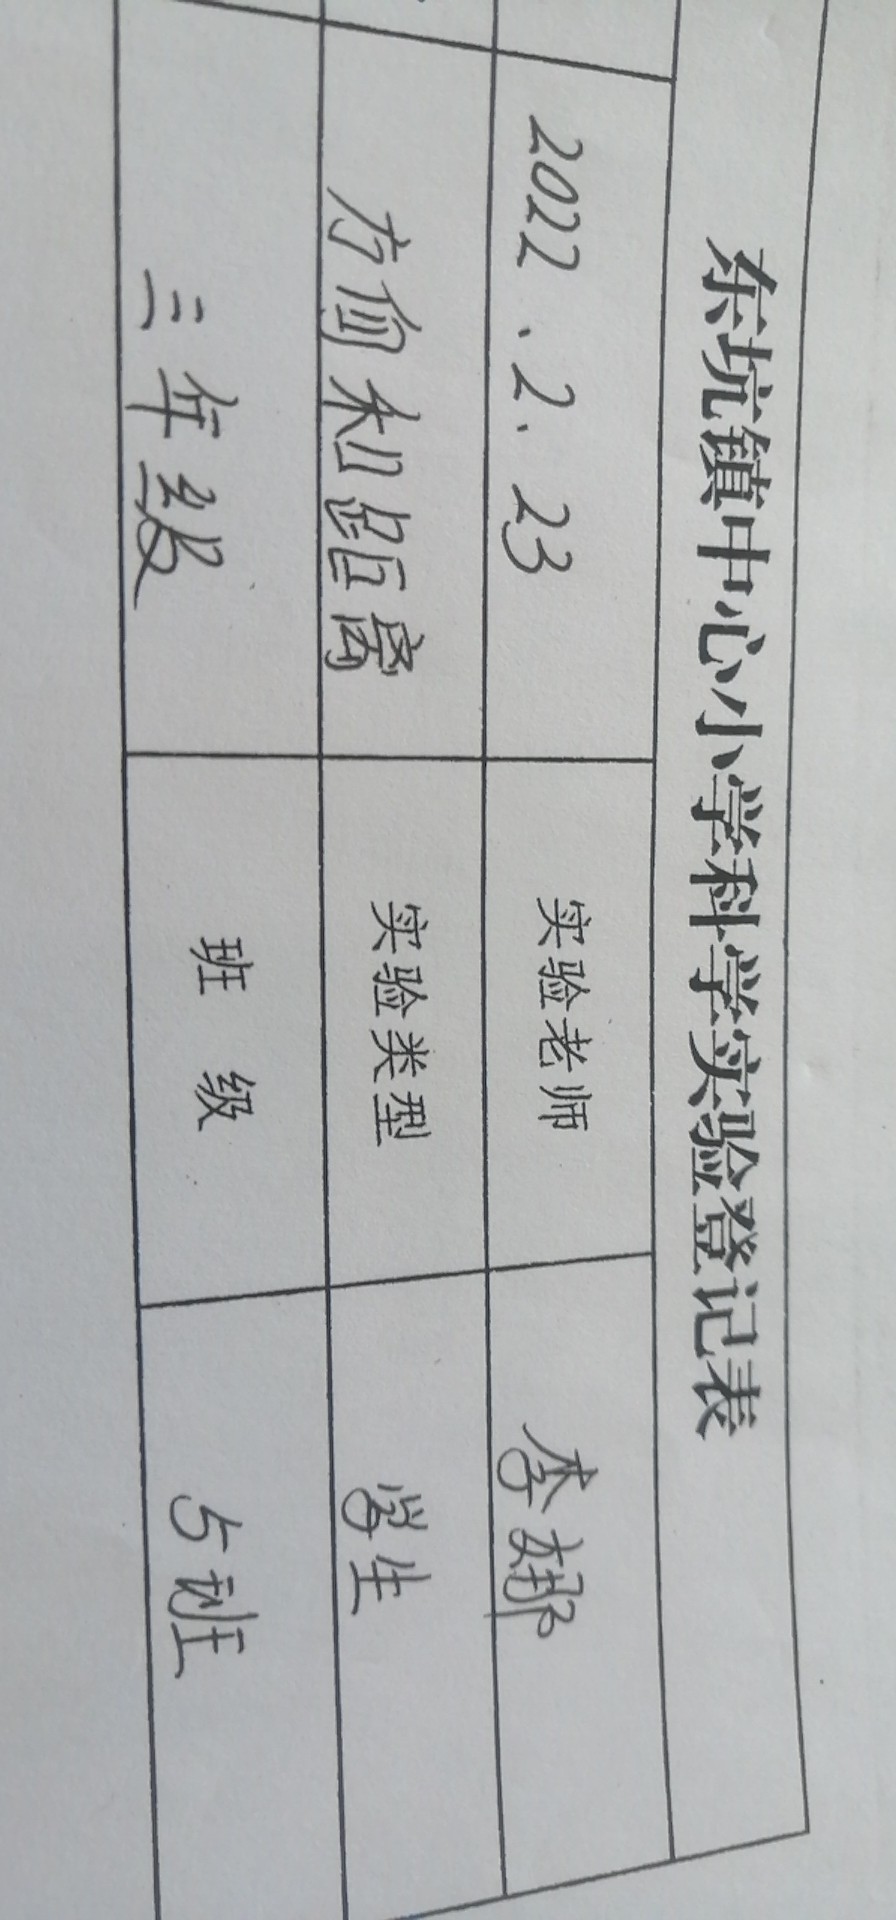 东坑镇中心小学科学实验登记表
2022、2、23 实验老师 李娜
方向和距离 实验类型 学生
三年级 班 级 5班